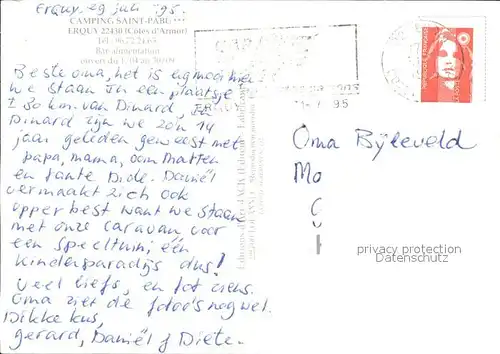 Erquy. 29 juli '95.
CAMPING SAINT-PABU ***
ERQUY 22430 (Côtes d'Armor)
Tél. 96.72.24.65
Bar-alimentation
ouvert du 1/04 au 30/09
Beste oma, het is erg mooi hier
we staan in een plaatsje
± 30 km. van Dinard, in
Dinard zijn we zo'n 14
jaar geleden geweest met
papa, mama, oom Matten
en tante Dide. Daniël
vermaakt zich ook
opperbest want we staan
met onze caravan voor
een speeltuin; één
kinderparadijs dus!
Veel liefs, en tot ziens.
Oma ziet de foto's nog wel.
Dikke kus,
gerard, Daniël & Diete.
95
RÉPUBLIQUE FRANÇAISE
Oma Bijleveld
Mo
privacy protection
DALANMEX